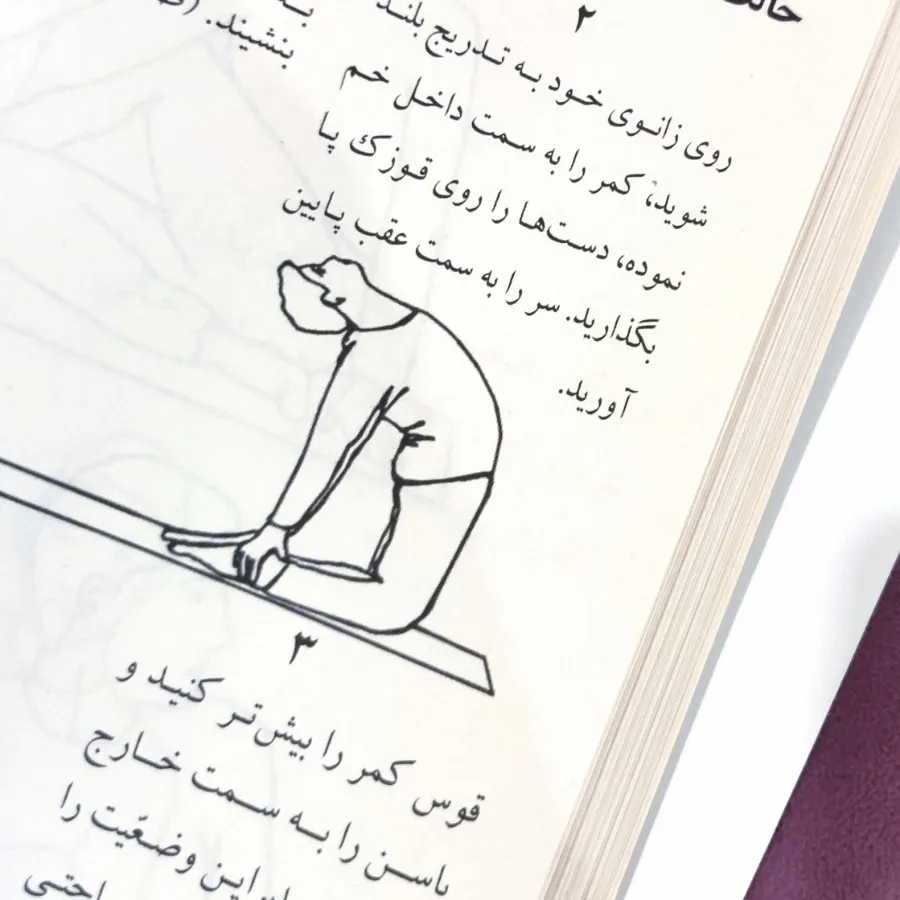 ۲
روی زانوی خود به تدریج بلند
شوید، کمر را به سمت داخل خم
نموده، دست‌ها را روی قوزک پا
بگذارید. سر را به سمت عقب پایین
آورید.
بنشیند.
۳
قوس کمر را بیش‌تر کنید و
باسن را به سمت خارج
این وضعیّت را